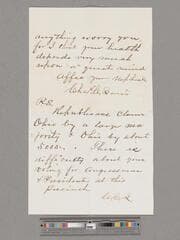 anything worry you
for I think your health
depends very much
upon a quiet mind
Affec your
Chas
P.S.
Republicans claim
Ohio by a large ma
jority & Ohio by about
5000. There is
difficulty about your
voting for Congressman
& President at this
precinct